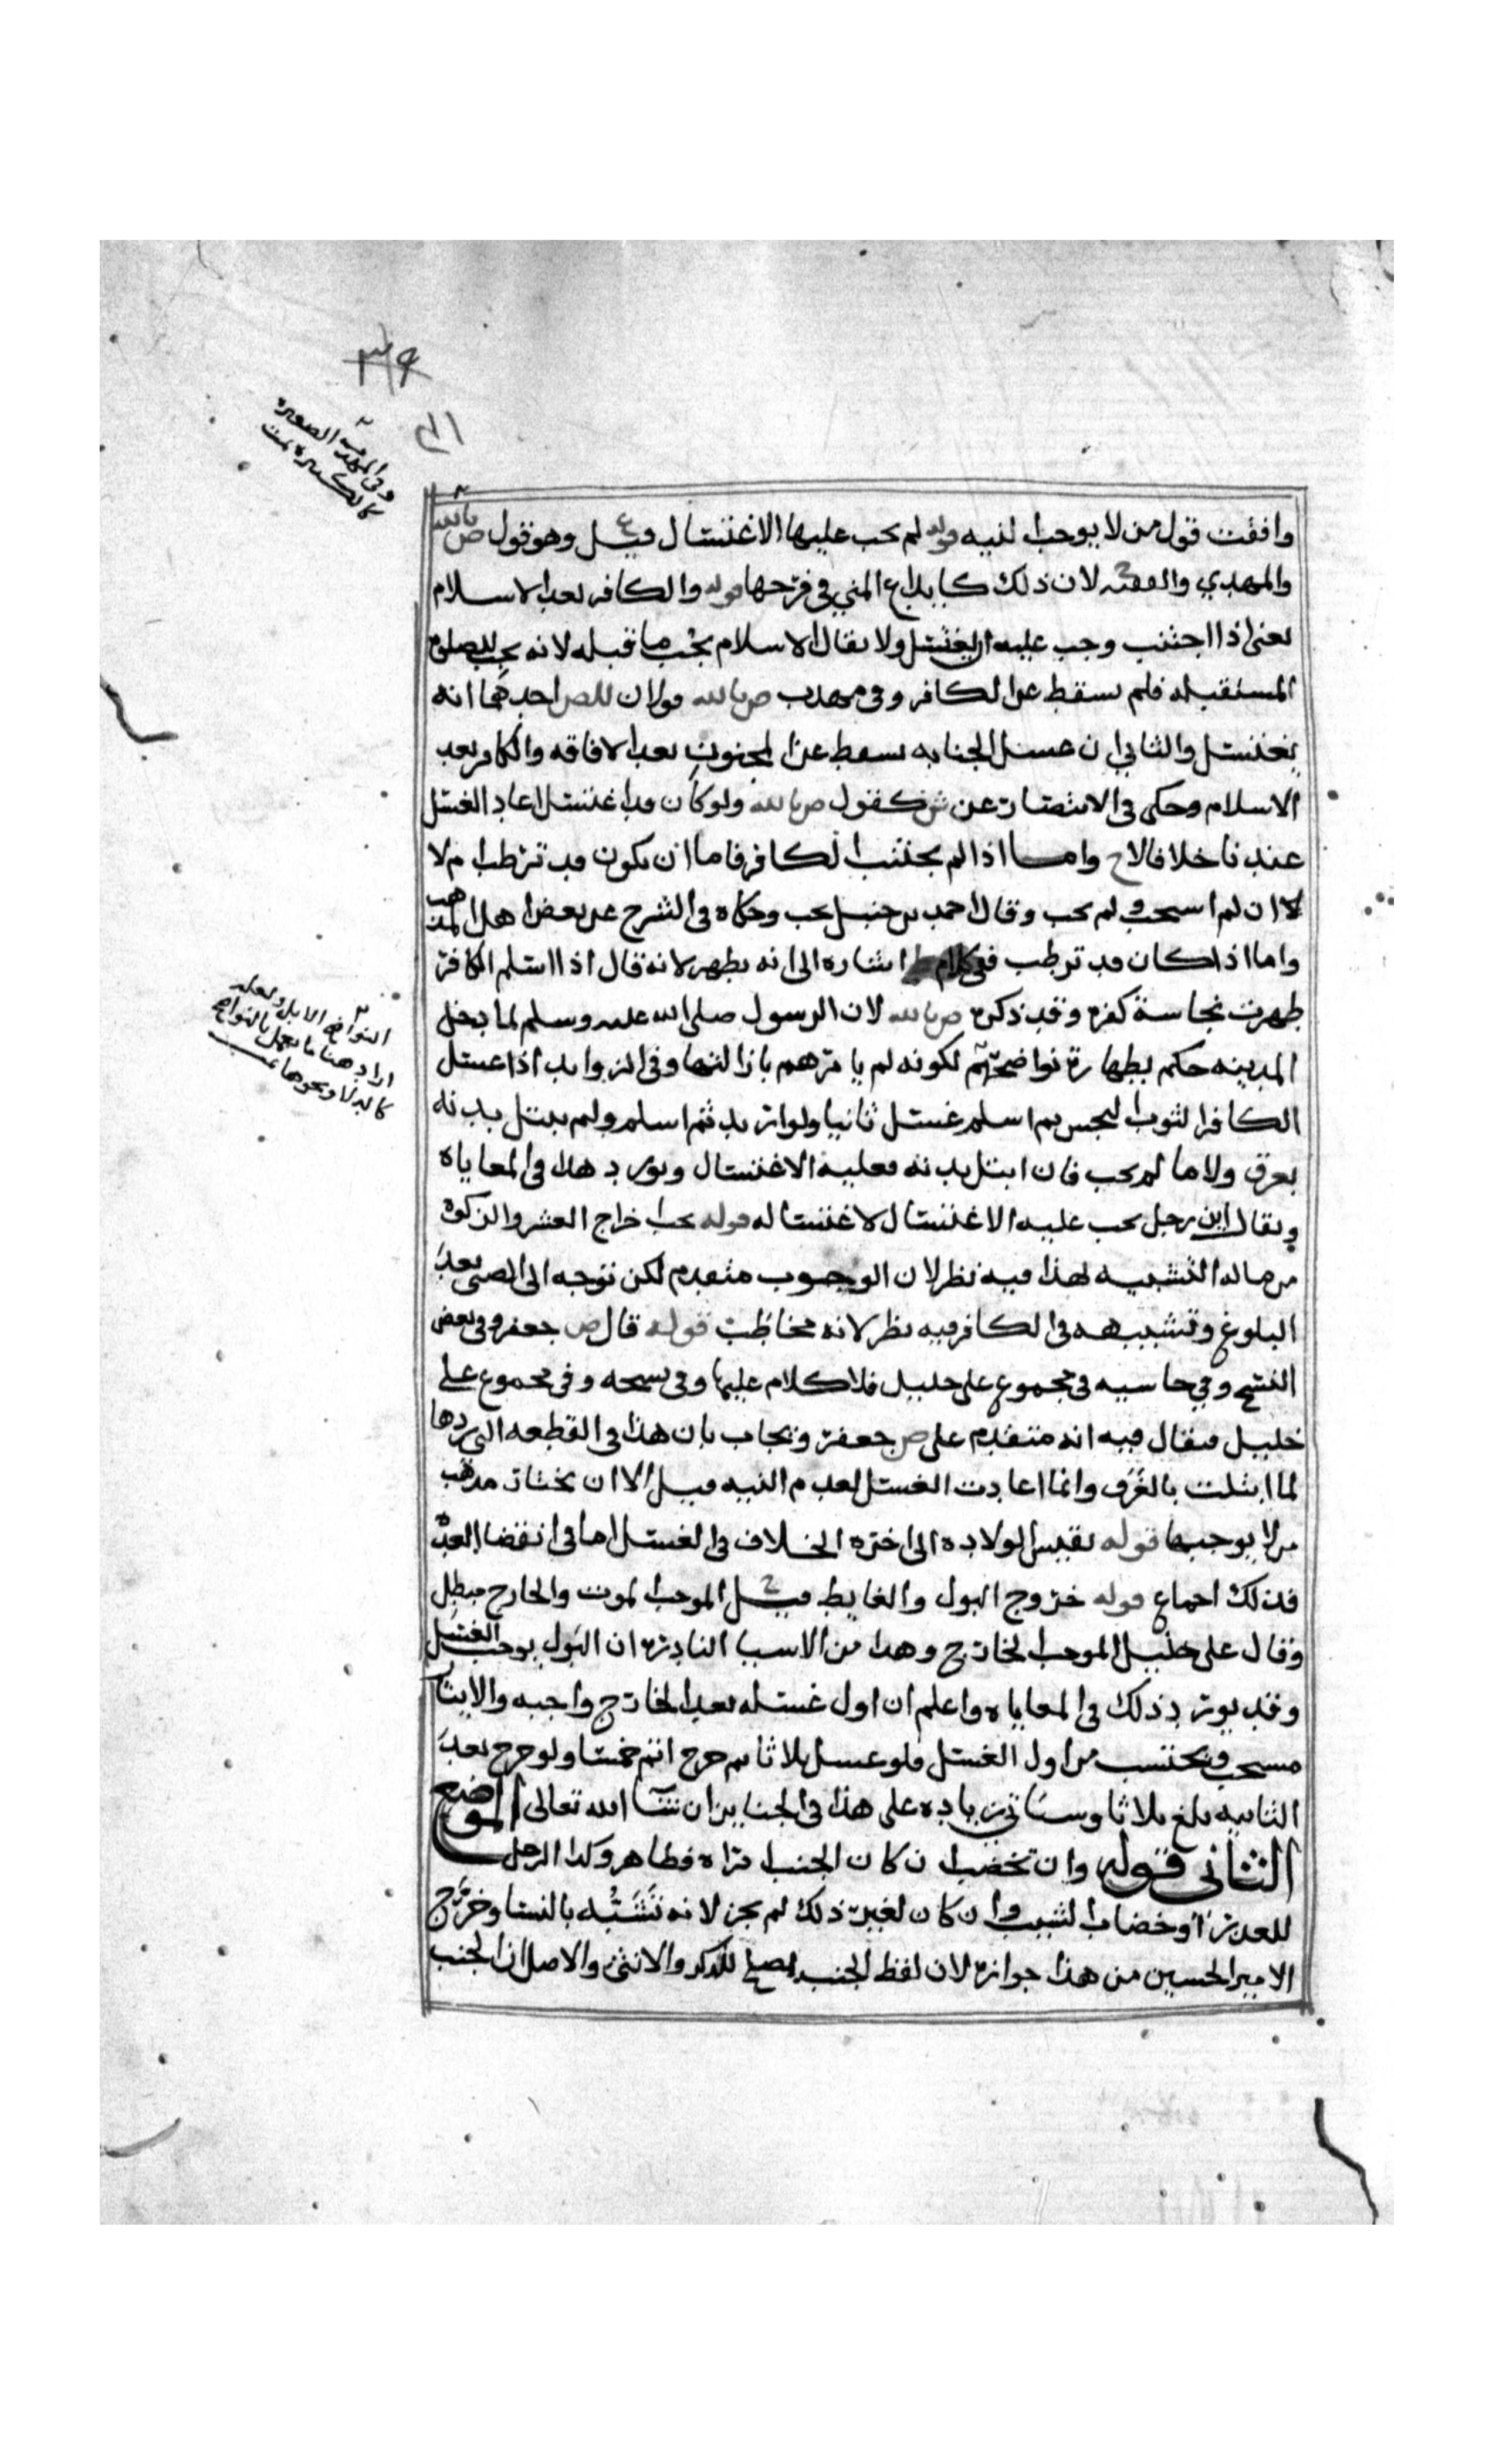 وفي المهذب الصغيره
كالكبيره تمت
وافقت قول من لا يوجب النيه قوله لم يجب عليها الاغتسال قيل ع وهو قول ص بالله
والمهدي والفقيه ح لان ذلك كايداع المني في فرجها قوله والكافر بعد الاسلام
يعني اذا اجتنب وجب عليه ان يغتسل ولا يقال الاسلام يجب ما قبله لانه يجب للصلوة
المستقبله فلم يسقط عن الكافر وفي مهذب ص بالله قولان للص احدهما انه
يغتسل والثاني ان غسل الجنابه يسقط عن المجنون بعد الافاقه والكافر بعد
الاسلام وحكى في الانتصار عن ش كقول ص بالله ولو كان قد اغتسل اعاد الغسل
عندنا خلافا لاح واما اذا لم يجتنب الكافر فاما ان يكون قد ترطب ام لا
لا ان لم استحب ولم يجب وقال احمد بن حنبل يجب وحكاه في الشرح عن بعض اهل المذهب
واما اذا كان قد ترطب ففي كلام ط اشاره الى انه يطهر لانه قال اذا اسلم الكافر
طهرت نجاسة كفره وقد ذكره ص بالله لان الرسول صلى الله عليه وسلم لما دخل
المدينه حكم بطهارة نواضحهم لكونه لم يامرهم بازالتها وفي الزوايد اذا غسل
الكافر الثوب النجس ثم اسلم غسل ثانيا ولو ارتد ثم اسلم ولم يبتل بدنه
بعرق ولا ما لم يجب فان ابتل بدنه فعليه الاغتسال ويورد هذا في المعاياه
ويقال اين رجل يجب عليه الاغتسال لاغتساله قوله يجب اخراج العشر والزكوة
من ماله التشبيه لهذا فيه نظر لان الوجوب متقدم لكن توجه الى الصبي بعد
البلوغ وتشبيهه في الكافر فيه نظر لانه مخاطب قوله قال ص جعفر وفي بعض
النسخ وفي حاشيه في مجموع علي خليل فلا كلام عليها وفي نسخه وفي مجموع علي
خليل فيقال فيه انه متقدم على ص جعفر ويجاب بان هذا في القطعه التي زردها
لما ابتلت بالعرق وانما اعادت الغسل لعدم النيه قيل الا ان يختار مذهب
من لا يوجبها قوله بقيس الولاده الى اخره الخلاف في الغسل اما في انقضا العده
فذلك اجماع قوله خروج البول والغايط قيل ح الموجب الموت والخارج مبطل
وقال علي خليل الموجب الخارج وهذا من الاسبا النادره ان البول يوجب الغسل
وقد يورد ذلك في المعاياه واعلم ان اول غسله بعد الخارج واجبه والايتار
مستحب ويحتسب من اول الغسل فلو غسل ثلاثا ثم خرج اتم خمسا ولو خرج بعد
الثانيه بلغ ثلاثا وسياتي زياده على هذا في الجنايز ان شا الله تعالى الموضع
الثاني قوله وان تخضب ان كان الجنب مراه فظاهر وكذا الرجل
للعذر او خضاب الشيب وان كان لغير ذلك لم يجز لانه تشبه بالنسا وخرج
الامير الحسين من هذا جوازه لان لفظ الجنب يصلح للذكر والانثى والاصل ان الجنب
النواضح الابل ولعله
اراد هنا ما يعمل بالنواضح
كالدلا ونحوها تمت